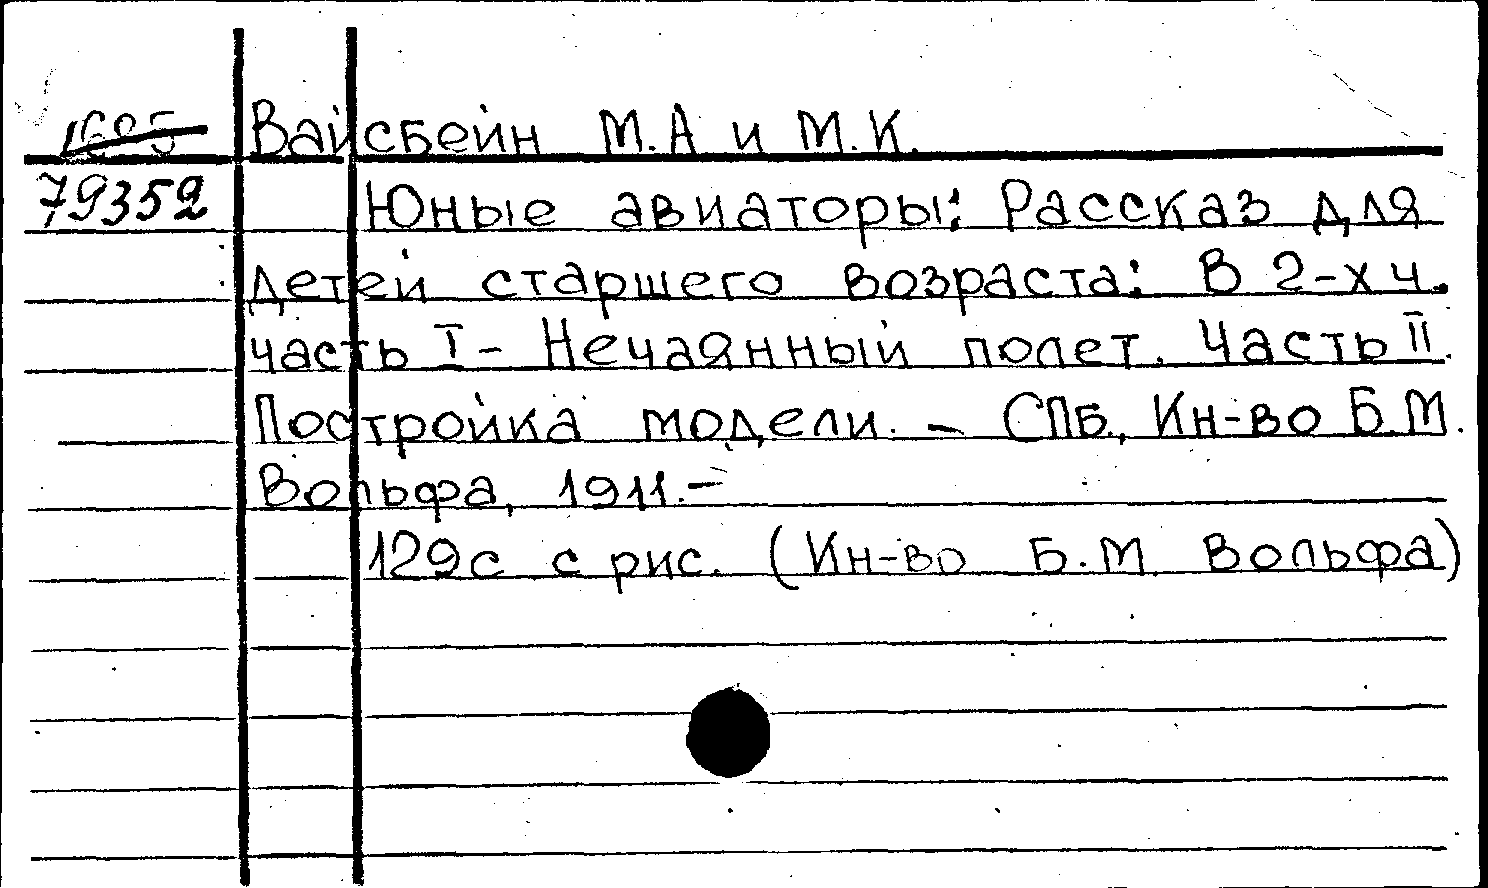 1605 Вайсбейн М.А и М.К.
79352 Юные авиаторы: Рассказ для
детей старшего возраста: В 2-х ч.
часть I - Нечаянный полет. Часть II.
Постройка модели. - СПб., Ин-во Б.М.
Вольфа, 1911.-
129с с рис. (Ин-во Б.М. Вольфа)